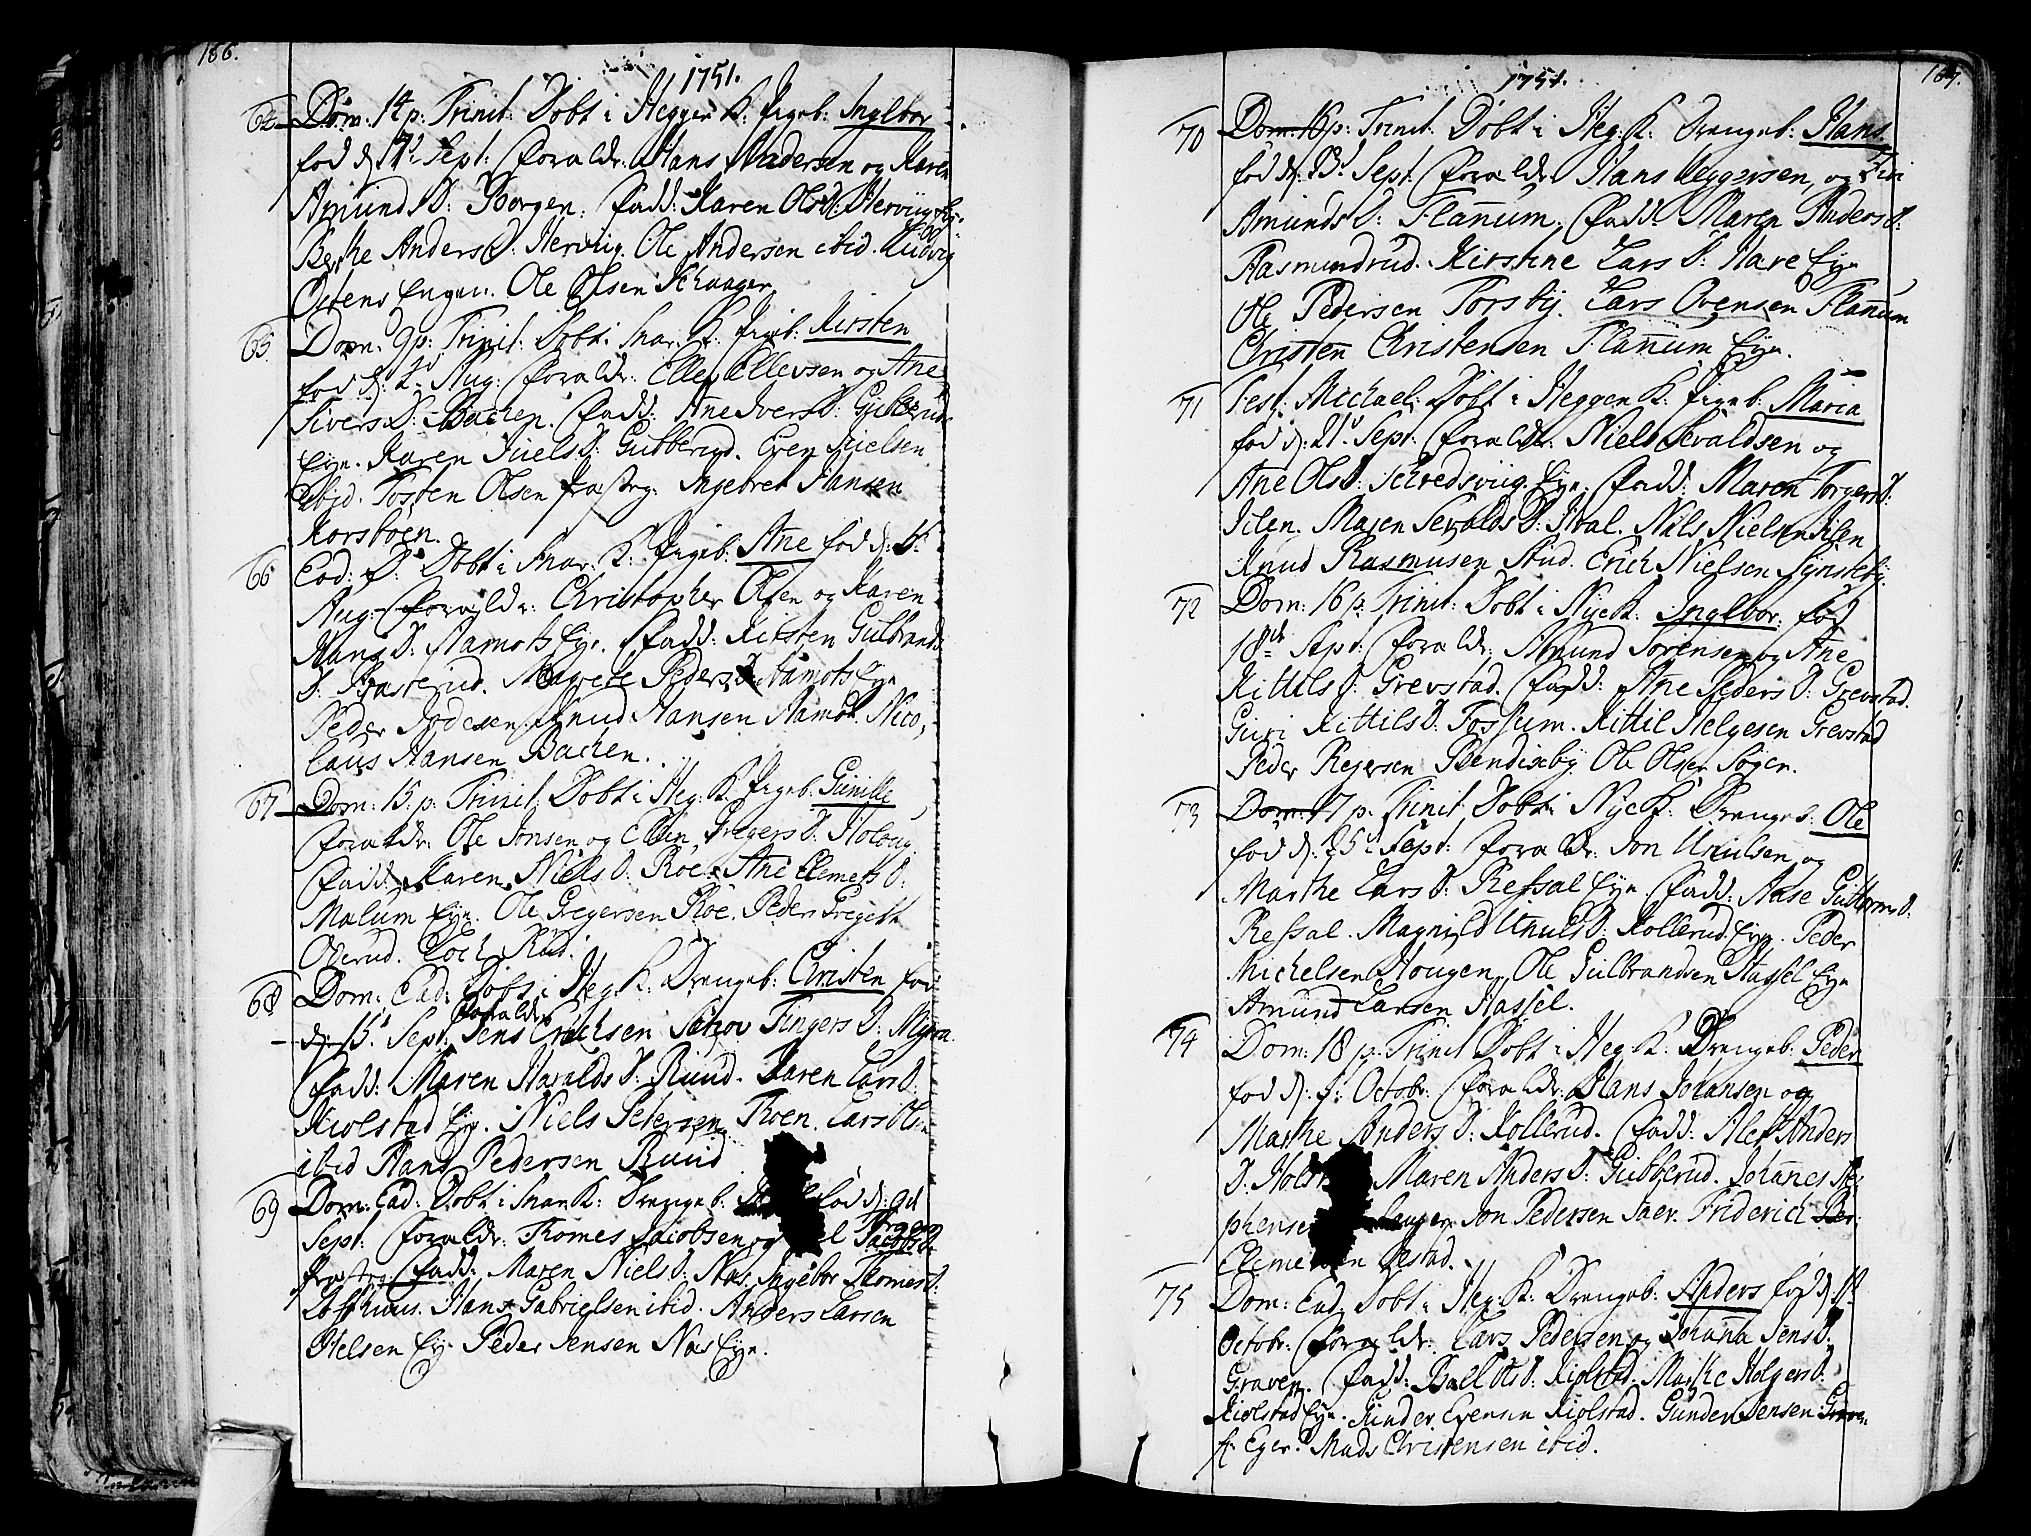 166.
1751.
64 Dom: 14 p: Trinit: Döbt i Heggen K: Pigeb: Ingebor
fød d: Sept: Foraldr: Hans Madersen og Karen
Amund D: Borgen. Fadd: Karen Ols D: Herviig
Berthe Anders D: Herviig. Ole Andersen ibid. Ludvig
Ostens Enger. Ole Olsen Schaager
65 Dom: 9 p: Trinit: Döbt i Snar: K: Pigeb: Kirsten
fød d: 2d Aug: Foraldr: Ellef Ellevsen og Ane
Sivers D: Bachen. Fadd: Ane Ivers D: Gubberud
Eye. Karen Niels D: Gubberud. Even Nielsen
ibid. Tosten Olsen Ingebret Hansen
Korsboen.
66 Ead: D: Döbt i Snar: K: Pigeb: Ane fød d:
Aug: Foraldr: Christopher Olsen og Karen
Hans D: Aamots Eye. Fadd: Kirsten Gulbrands
D: Magrete Peders D: Aamots Eye
Peder Knud Hansen Aamot. Nico,
laus Hansen Bachen.
67 Dom: 15. p: Trinit: Döbt i Heg: K: Pigeb: Gunille
Foraldr: Ole Jonsen og Elin Gregers D: Holoug.
Fadd: Karen Niels D: Roe. Ane Clemets D:
Malum Eye. Ole Gregersen Roe. Peder
Oderud.
68 Dom: Ead: Döbt i Heg: K: Drengeb: Christen fød
d: 15d Sept: Foraldr: Jens Erichsen Fingers D: Myra.
Fadd: Maren Haralds D: Ruud. Karen Lars D:
Kiolstad Eye. Niels Petersen Thoen. Lars Ols:
ibid Hans Pedersen Ruud
69 Dom: Ead: Döbt i Snar K: Drengeb: fød d: 9d
Sept: Foraldr: Thomes Jacobsen og
Fadd: Maren Niels D: Næs. Ingebor Thomes D:
Lofthuus. Hans Gabrielsen ibid. Anders Larsen
Eye Peder Jensen Næs Eye.
167.
1751.
70 Dom: 16 p: Trinit: Döbt i Heg: K: Drengeb: Hans
fød d: 13d Sept: Foraldr: Hans Heggersen, og Siri
Amunds D: Flannum. Fadd: Maren Anders D:
Rasmundrud. Kirstine Lars D: Hare Eye
Ole Pedersen Torsby. Lars Ovensen Flannum
Christen Christensen Flannum Eye.
71 Fest: Michael: Döbt i Heggen K: Pigeb: Maria
fød d: 21d Sept: Foraldr: Niels Sevaldsen og
Ane Ols D: Schredsviig Eye. Fadd: Maren Torgers D:
Ilen. Maren Sevalds D: Hval. Nils Nielsen Ilen
Knud Rasmusen Erich Nielsen Synsteby.
72 Dom: 16 p: Trinit: Döbt i Nyek K: Ingebor: fød
18de Sept: Foraldr: Amund Sorensen og Ane
Kittils D: Grevstad. Fadd: Ane Peders D: Grevstad.
Guri Kittils D: Fossum. Kittil Helgesen Grevstad
Peder Rejersen Bendixeby. Ole Olsen Sogen.
73 Dom: 17 p: Trinit: Döbt i Nyek: Drengeb: Ole
fød d: 25d Sept: Foraldr: Jon Unulsen og
Marthe Lars D: Ressal Eye. Fadd: Aase Guttorms D:
Ressal. Magnild Unuls D: Kollerud Eye. Peder
Michelsen Hougen. Ole Gulbrandsen Hassel Eye
Amund Larsen Hassel.
74 Dom: 18 p: Trinit Döbt i Heg: K: Drengeb: Peder
fød d: Octobr: Foraldr: Hans Johansen og
Marthe Anders D: Kollerud. Fadd: Anders
D: Maren Anders D: Gubberud. Johanes Ste
phensen Jon Pedersen Saer. Friderich
75 Dom: Ead: Döbt i Heg: K: Drengeb: Anders fød d:
Octobr: Foraldr: Lars Pedersen og Johanna Jens D:
Graven. Fadd: Ols D: Kiolstad. Marthe Holgers D:
Kiolstad Eye. Gunder Evensen Kiolstad. Gunder Jensen
Eger. Mads Christensen ibid.